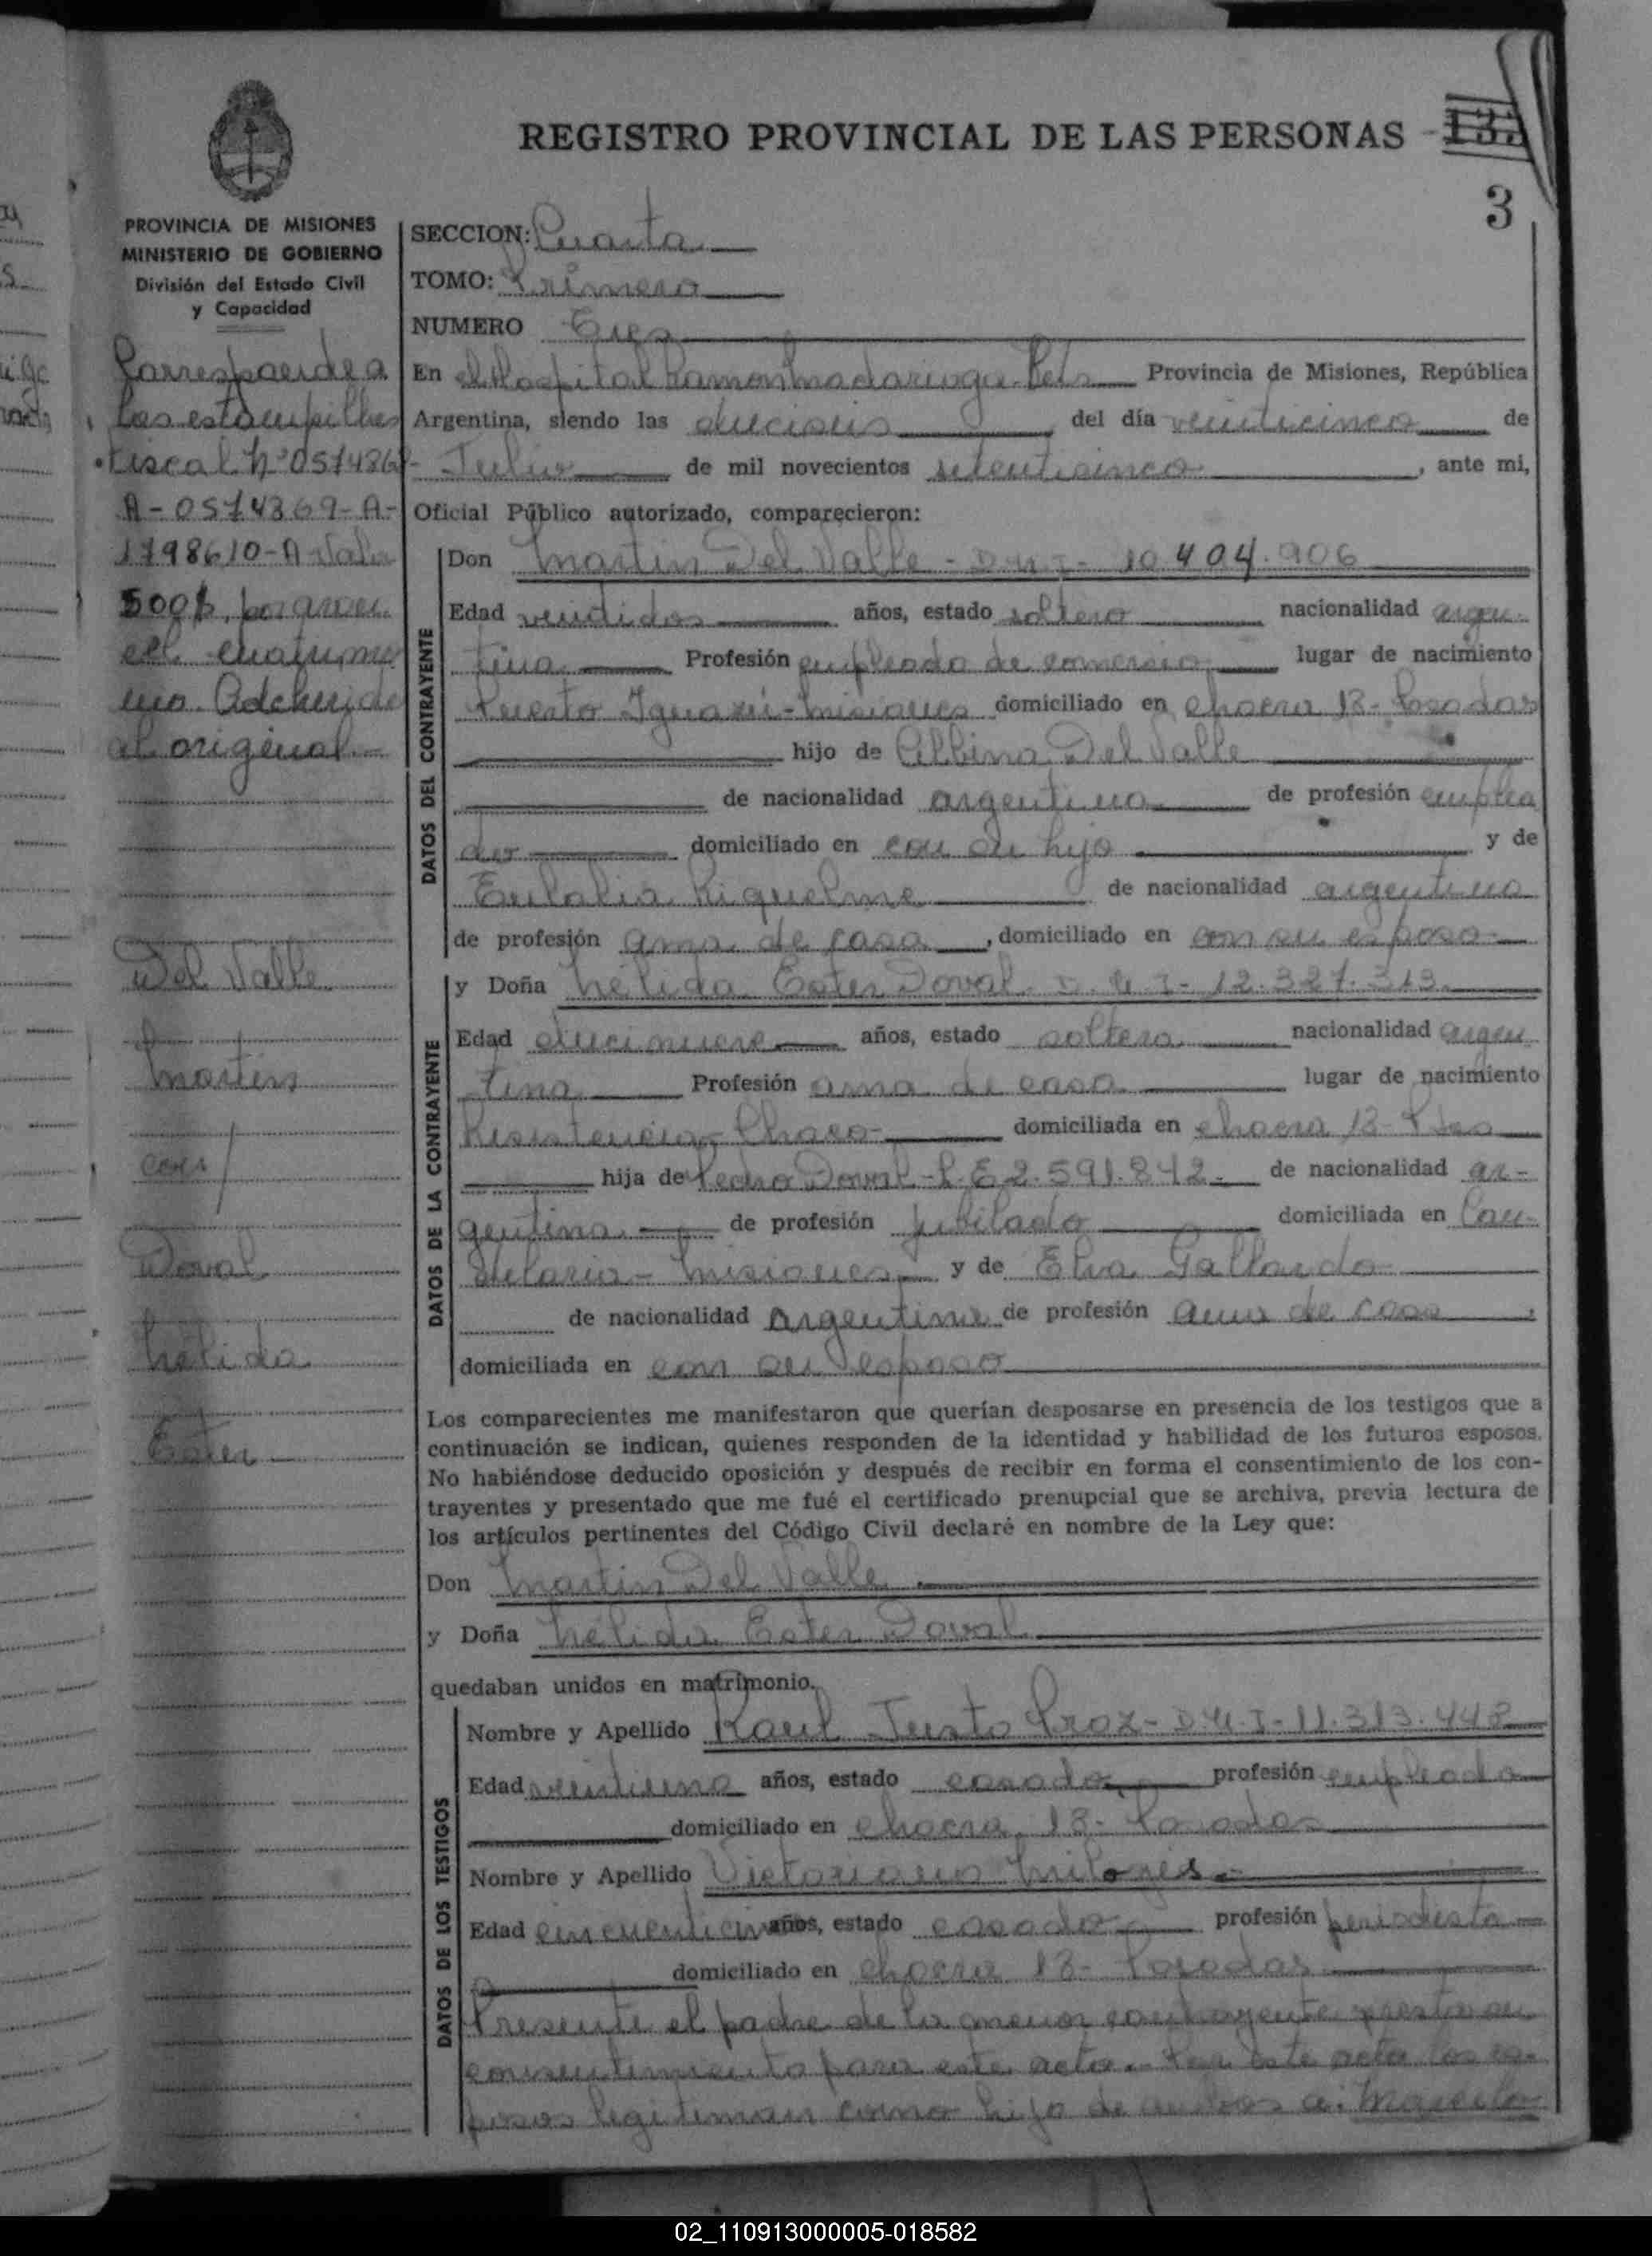 REGISTRO PROVINCIAL DE LAS PERSONAS
3
PROVINCIA DE MISIONES
MINISTERIO DE GOBIERNO
División del Estado Civil
y Capacidad
Corresponde a
las estampillas
fiscal Nº 0574868-
A-0574869-A-
1798610-A-Valor
500$, por
el
Adherida
al original.-
Del Valle
Martin
con
Doval
Nélida
Ester
SECCION: Cuarta
TOMO: Primero
NUMERO Tres
En el Hospital Ramon Madariaga. Pdas Provincia de Misiones, República
Argentina, siendo las dieciseis del día veinticinco de
Julio de mil novecientos setenticinco, ante mi,
Oficial Público autorizado, comparecieron:
DATOS DEL CONTRAYENTE
Don Martin Del Valle - D.N.I- 10.404.906
Edad veintidos años, estado soltero nacionalidad argen-
tina Profesión empleado de comercio lugar de nacimiento
Puerto Iguazú-Misiones domiciliado en chacra 13- Posadas
hijo de Albino Del Valle
de nacionalidad argentina de profesión emplea
do domiciliado en con su hijo y de
Eulalia Riquelme de nacionalidad argentina
de profesión ama de casa, domiciliado en con su esposo-
DATOS DE LA CONTRAYENTE
y Doña Nélida Ester Doval D.N.I- 12.327.313
Edad diecinueve años, estado soltera nacionalidad argen
tina Profesión ama de casa lugar de nacimiento
Resistencia- Chaco- domiciliada en chacra 13- Pdas
hija de Pedro Doval-L.E 2.591.842- de nacionalidad ar-
gentina de profesión jubilado domiciliada en Can-
delaria- Misiones y de Elva Gallardo
de nacionalidad Argentina de profesión ama de casa;
domiciliada en con su esposo
Los comparecientes me manifestaron que querían desposarse en presencia de los testigos que a
continuación se indican, quienes responden de la identidad y habilidad de los futuros esposos.
No habiéndose deducido oposición y después de recibir en forma el consentimiento de los con-
trayentes y presentado que me fué el certificado prenupcial que se archiva, previa lectura de
los artículos pertinentes del Código Civil declaré en nombre de la Ley que:
Don Martin Del Valle
y Doña Nélida Ester Doval
quedaban unidos en matrimonio.
DATOS DE LOS TESTIGOS
Nombre y Apellido Raul Justo Proz- D.N.I-11.313.448
Edad veintiuno años, estado casado profesión empleado
domiciliado en chacra 13- Posadas
Nombre y Apellido Victoriano
Edad años, estado casado profesión periodista
domiciliado en chacra 13- Posadas
Presente el padre de la menor contrayente presta su
consentimiento para este acto.- Por este acto los es-
posos legitiman como hijo de ambos a: Marcelo
02_110913000005-018582